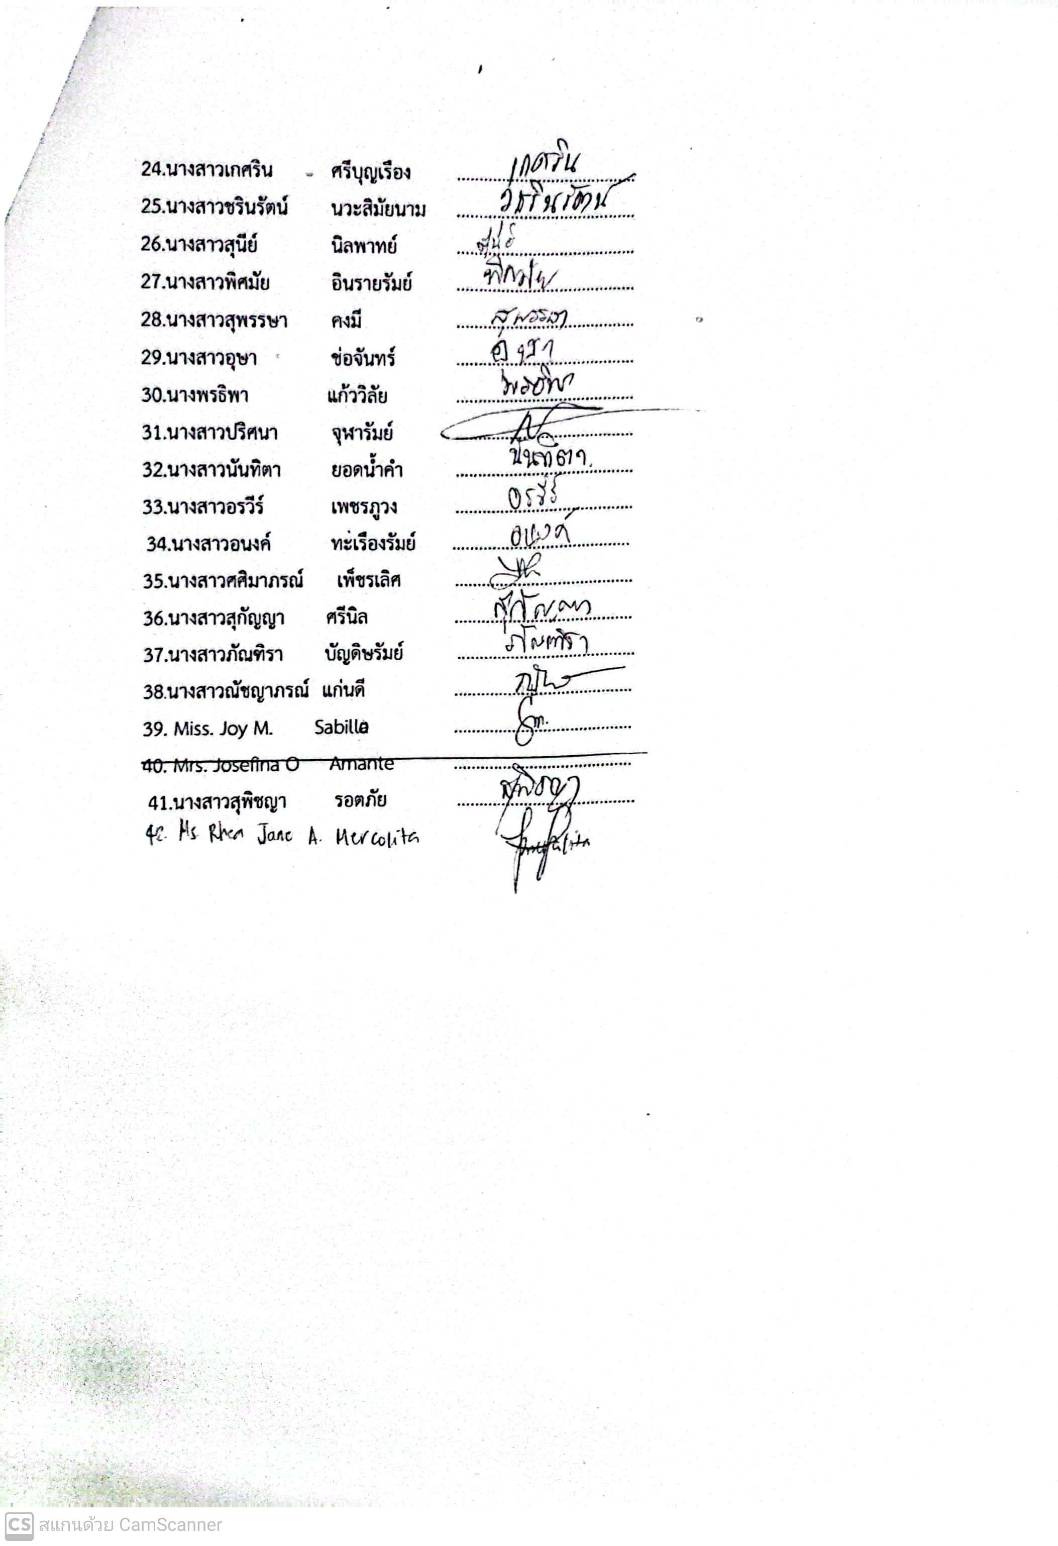 24.นางสาวเกศริน ศรีบุญเรือง เกศริน
25.นางสาวชรินรัตน์ นวะสิมัยนาม ชรินรัตน์
26.นางสาวสุนีย์ นิลพาทย์ สุนีย์
27.นางสาวพิศมัย อินรายรัมย์ พิศมัย
28.นางสาวสุพรรษา คงมี สุพรรษา
29.นางสาวอุษา ช่อจันทร์ อุษา
30.นางพรธิพา แก้ววิลัย พรธิพา
31.นางสาวปริศนา จุฬารัมย์
32.นางสาวนันทิตา ยอดน้ำคำ นันทิตา
33.นางสาวอรวีร์ เพชรภูวง อรวีร์
34.นางสาวอนงค์ ทะเรืองรัมย์ อนงค์
35.นางสาวศศิมาภรณ์ เพ็ชรเลิศ
36.นางสาวสุกัญญา ศรีนิล สุกัญญา
37.นางสาวภัณฑิรา บัญดิษรัมย์ ภัณฑิรา
38.นางสาวณัชญาภรณ์ แก่นดี
39. Miss. Joy M. Sabilla
40. Mrs. Josefina O Amante
41.นางสาวสุพิชญา รอตภัย สุพิชญา
42. Ms Rhea Jane A. Mercolita
CS สแกนด้วย CamScanner